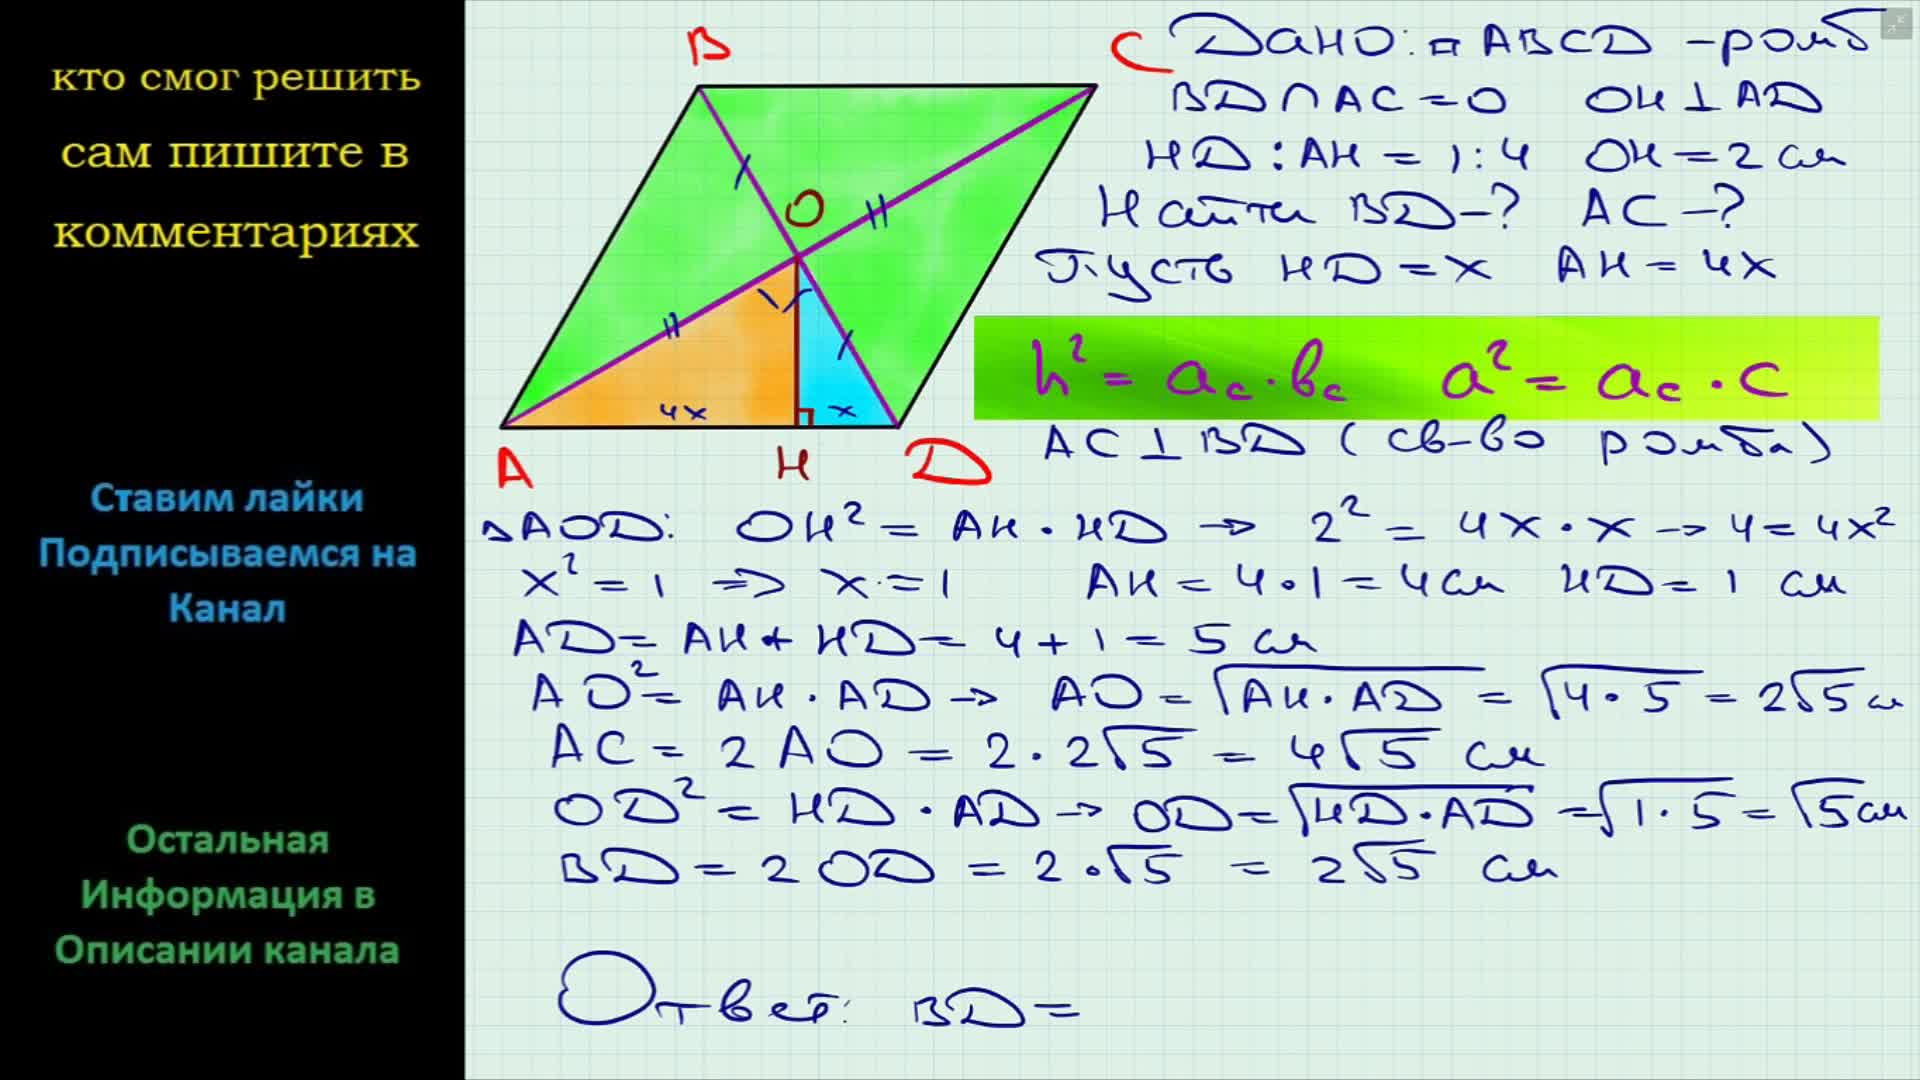 кто смог решить
сам пишите в
комментариях
Ставим лайки
Подписываемся на
Канал
Остальная
Информация в
Описании канала
B
C
O
4x
x
A
H
D
Дано: ▱ ABCD - ромб
BD ∩ AC = O   OH ⊥ AD
HD : AH = 1 : 4   OH = 2 см
Найти BD - ?   AC - ?
Пусть HD = x   AH = 4x
h² = a_c · b_c   a² = a_c · c
AC ⊥ BD ( св-во ромба)
△AOD: OH² = AH · HD → 2² = 4x · x → 4 = 4x²
x² = 1 => x = 1   AH = 4 · 1 = 4 см   HD = 1 см
AD = AH + HD = 4 + 1 = 5 см
AO² = AH · AD → AO = √AH · AD = √4 · 5 = 2√5 см
AC = 2 AO = 2 · 2√5 = 4√5 см
OD² = HD · AD → OD = √HD · AD = √1 · 5 = √5 см
BD = 2 OD = 2 · √5 = 2√5 см
Ответ: BD =